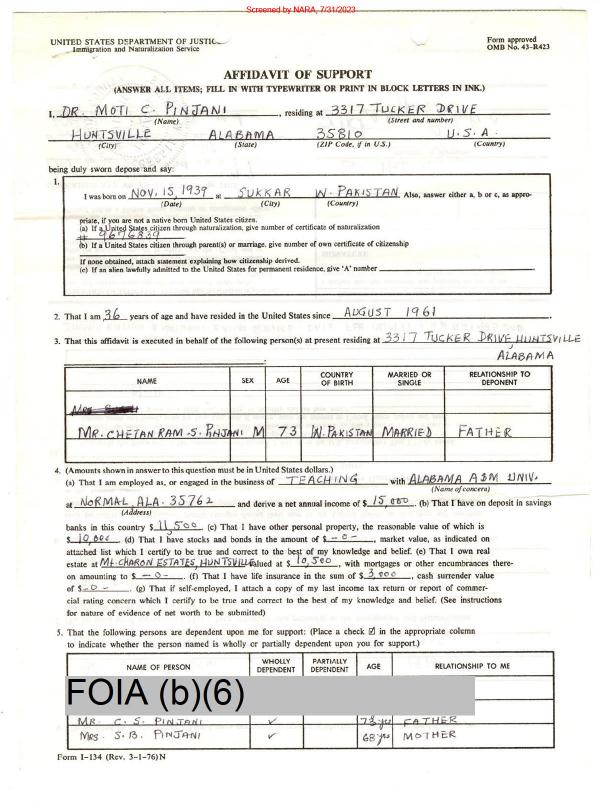 Screened by NARA, 7/31/2023
UNITED STATES DEPARTMENT OF JUSTIC
Immigration and Naturalization Service
Form approved
OMB No. 43-R423
AFFIDAVIT OF SUPPORT
(ANSWER ALL ITEMS; FILL IN WITH TYPEWRITER OR PRINT IN BLOCK LETTERS IN INK.)
I, DR. MOTI C. PINJANI, residing at 3317 TUCKER DRIVE
(Name) (Street and number)
HUNTSVILLE ALABAMA 35810 U.S.A.
(City) (State) (ZIP Code, if in U.S.) (Country)
being duly sworn depose and say:
1.
I was born on NOV, 15, 1939 at SUKKAR W. PAKISTAN Also, answer either a, b or c, as appro-
(Date) (City) (Country)
priate, if you are not a native born United States citizen.
(a) If a United States citizen through naturalization, give number of certificate of naturalization
# 9676839
(b) If a United States citizen through parent(s) or marriage, give number of own certificate of citizenship
If none obtained, attach statement explaining how citizenship derived.
(c) If an alien lawfully admitted to the United States for permanent residence, give 'A' number
2. That I am 36 years of age and have resided in the United States since AUGUST 1961.
3. That this affidavit is executed in behalf of the following person(s) at present residing at 3317 TUCKER DRIVE, HUNTSVILLE
ALABAMA
NAME SEX AGE COUNTRY OF BIRTH MARRIED OR SINGLE RELATIONSHIP TO DEPONENT
MR. CHETAN RAM .S. PINJANI M 73 W. PAKISTAN MARRIED FATHER
4. (Amounts shown in answer to this question must be in United States dollars.)
(a) That I am employed as, or engaged in the business of TEACHING with ALABAMA A&M UNIV.
(Name of concern)
at NORMAL, ALA. 35762 and derive a net annual income of $ 15,000. (b) That I have on deposit in savings
(Address)
banks in this country $ 11,500 (c) That I have other personal property, the reasonable value of which is
$ 10,000. (d) That I have stocks and bonds in the amount of $ -0-, market value, as indicated on
attached list which I certify to be true and correct to the best of my knowledge and belief. (e) That I own real
estate at Mt. CHARON ESTATES, HUNTSVILLE valued at $ 10,500, with mortgages or other encumbrances there-
on amounting to $ -0-. (f) That I have life insurance in the sum of $ 3,000, cash surrender value
of $ -0-. (g) That if self-employed, I attach a copy of my last income tax return or report of commer-
cial rating concern which I certify to be true and correct to the best of my knowledge and belief. (See instructions
for nature of evidence of net worth to be submitted)
5. That the following persons are dependent upon me for support: (Place a check ☑ in the appropriate column
to indicate whether the person named is wholly or partially dependent upon you for support.)
NAME OF PERSON WHOLLY DEPENDENT PARTIALLY DEPENDENT AGE RELATIONSHIP TO ME
FOIA (b)(6)
MR. C. S. PINJANI ✓ 73 yrs FATHER
MRS. S. B. PINJANI ✓ 68 yrs MOTHER
Form I-134 (Rev. 3-1-76)N